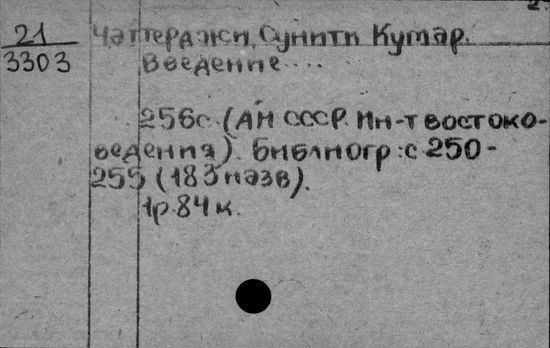 2.
21 Чаттерджи, Сунити Кумар.
3303 Введение ...
256с. (АН СССР. Ин-т востоко-
ведения). Библиогр.: с 250-
255 (183 назв).
1р. 84 к.